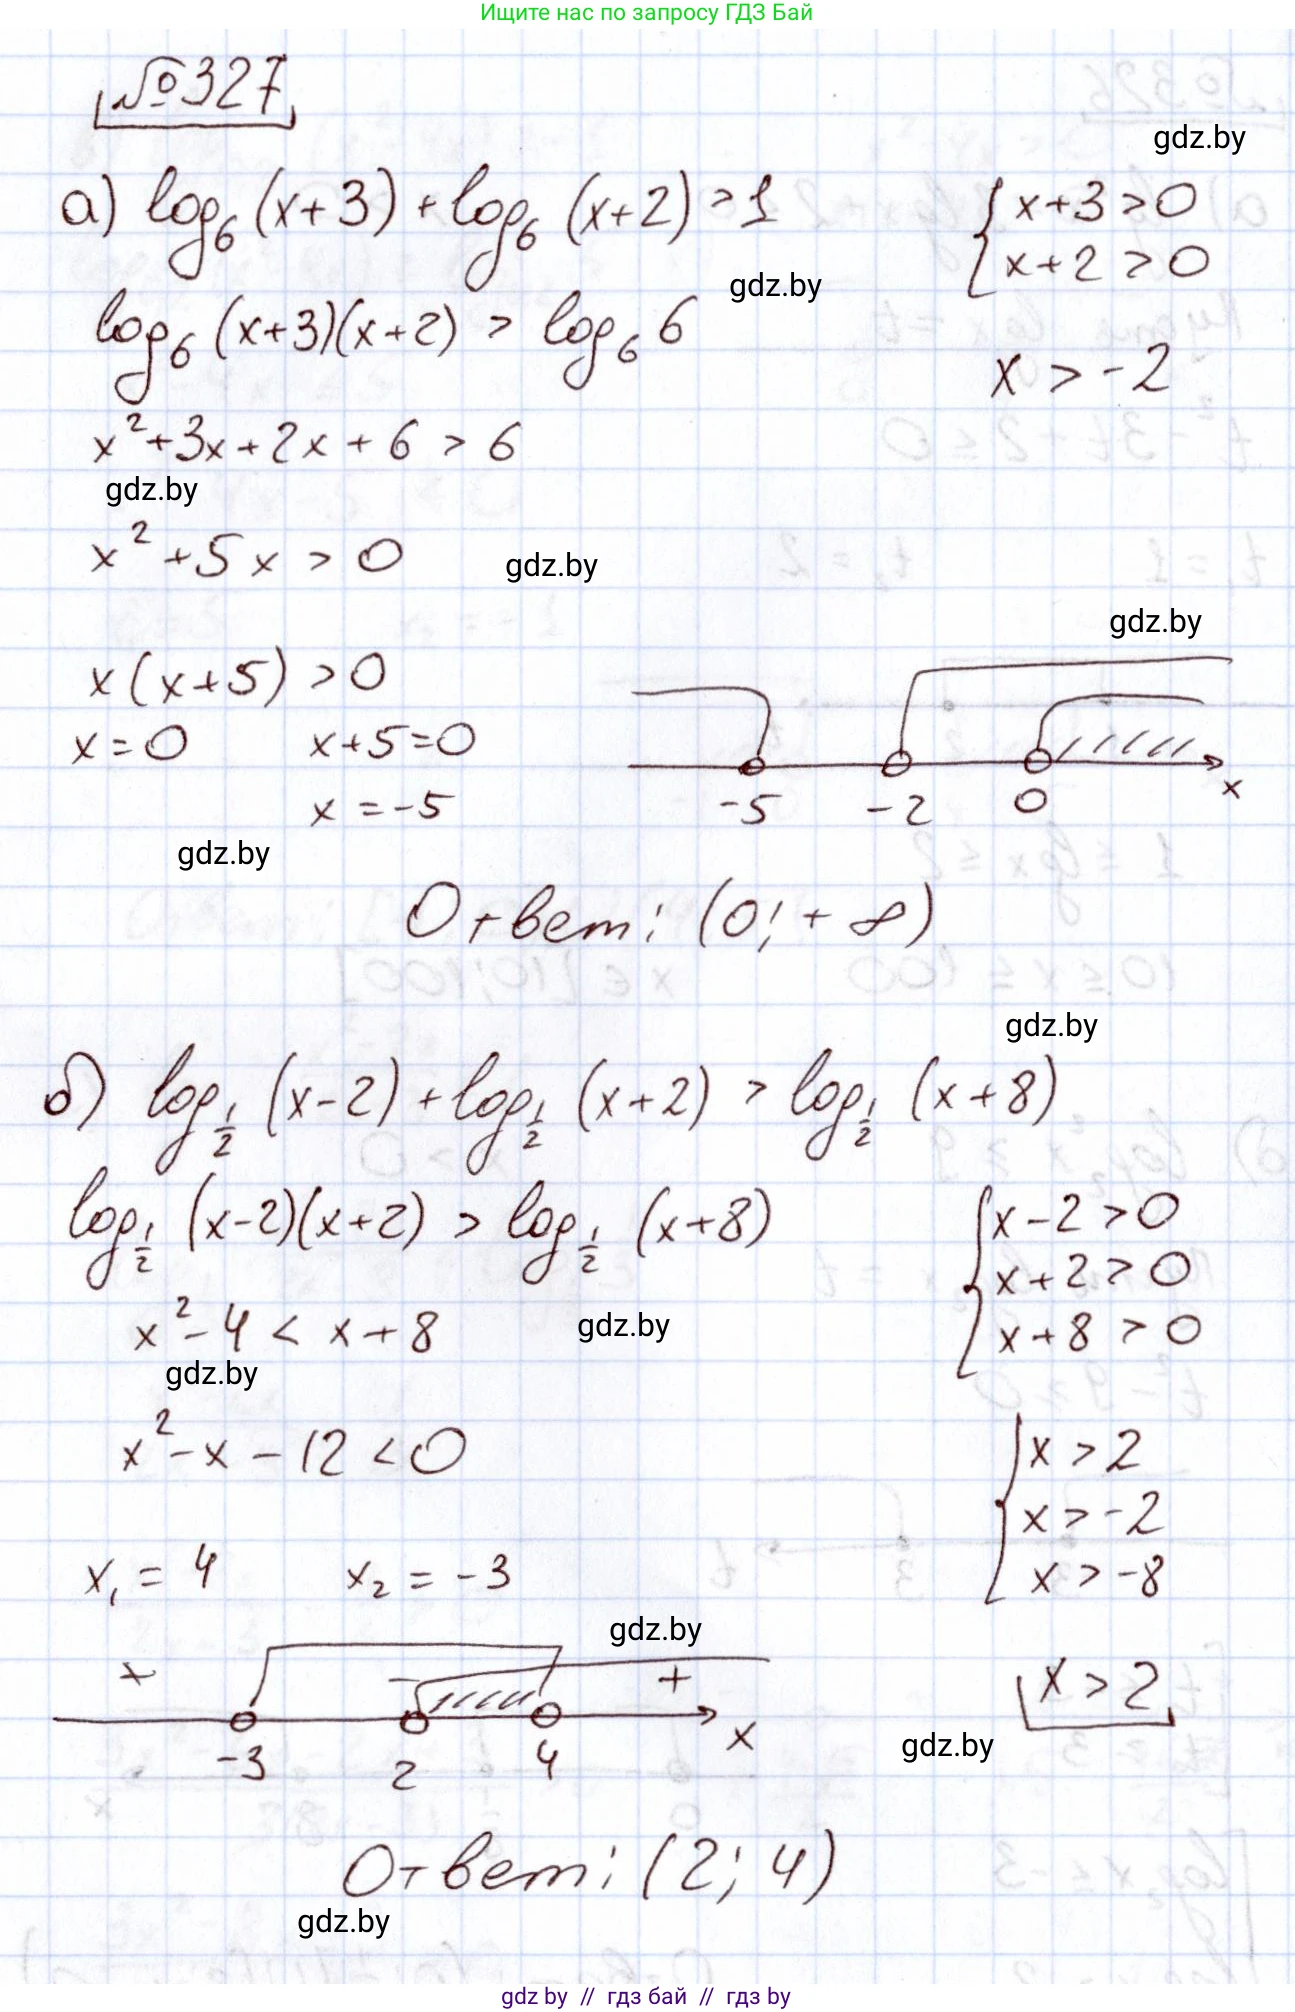 Ищите нас по запросу ГДЗ Бай
№327
gdz.by
а) log₆(x+3) + log₆(x+2) > 1
{x+3>0
x+2>0
gdz.by
log₆(x+3)(x+2) > log₆6
x > -2
x²+3x+2x+6 > 6
gdz.by
x²+5x > 0
gdz.by
gdz.by
x(x+5) > 0
x=0 x+5=0
x = -5
-5 -2 0 x
gdz.by
Ответ: (0; +∞)
gdz.by
б) log_{1/2}(x-2) + log_{1/2}(x+2) > log_{1/2}(x+8)
log_{1/2}(x-2)(x+2) > log_{1/2}(x+8)
{x-2>0
x+2>0
x+8>0
x²-4 < x+8
gdz.by
gdz.by
x²-x-12<0
{x > 2
x > -2
x > -8
x₁ = 4 x₂ = -3
gdz.by
+ - +
-3 2 4 x
x > 2
gdz.by
Ответ: (2; 4)
gdz.by
gdz by // гдз бай // гдз by